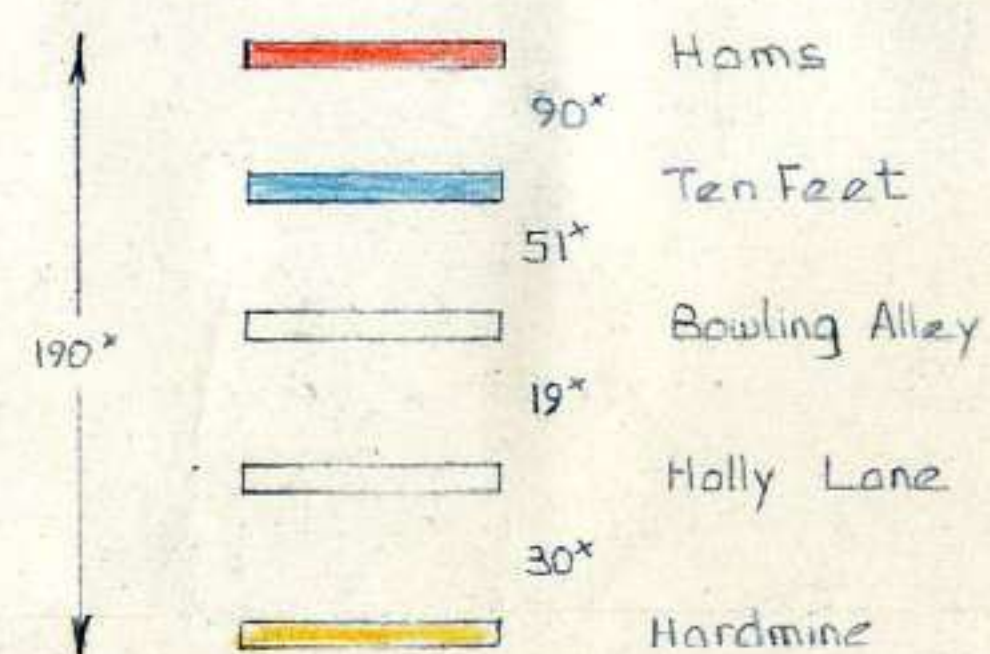 Hams
90x
Ten Feet
51x
Bowling Alley
190x
19x
Holly Lane
30x
Hardmine